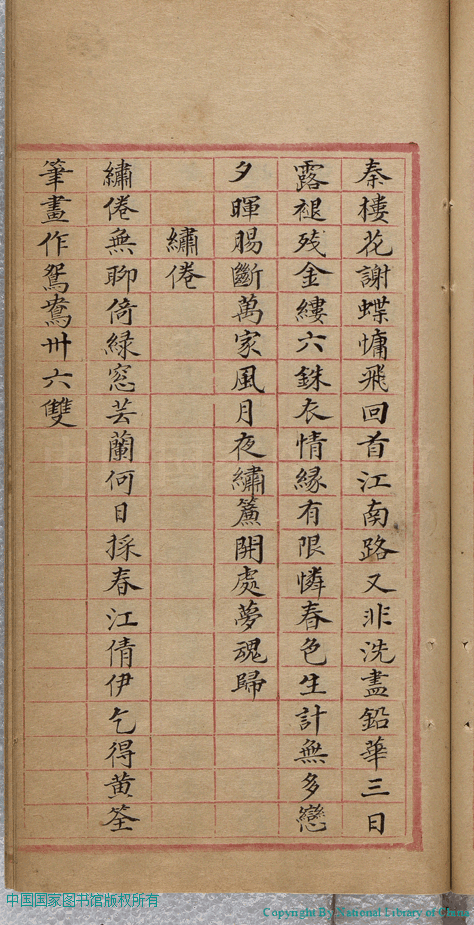 秦樓花謝蝶慵飛回首江南路又非洗盡鉛華三日
露褪残金縷六銖衣情緣有限憐春色生計無多戀
夕暉腸斷萬家風月夜繡簾開處夢魂歸
繡倦
繡倦無聊倚綠窓芸蘭何日採春江倩伊乞得黄筌
筆畫作鴛鴦卅六雙
中国国家图书馆版权所有
Copyright By National Library of China